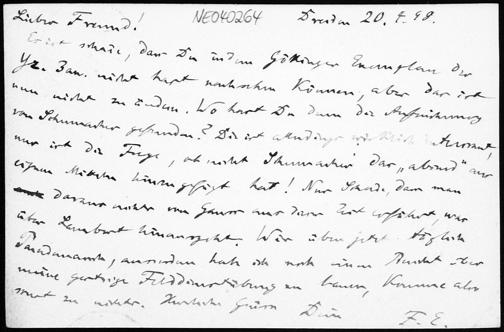 Lieber Freund! NE040264 Dresden 20.4.98.
Es ist schade, dass Du in dem Göttinger Exemplar der
nicht hast nachsehen können, aber das ist
nun nicht zu ändern. Wo hast Du denn die Aufzeichnung
von Schumacher gefunden? Die ist allerdings wirklich interessant,
nur ist die Frage, ob nicht Schumacher das „absurd" aus
eignen Mitteln hinzugefügt hat! Nur Schade, dass man
daraus nichts von Gauss aus der Zeit erfährt, was
über Lambert hinausgeht. Wir üben jetzt täglich
Parademarsch, ausserdem hab ich noch einen Bericht über
meine gestrige Felddienstübung zu bauen, komme also
sonst zu nichts. Herzliche Grüsse Dein F. E.